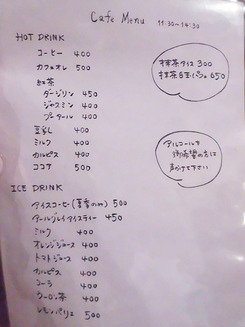 Cafe Menu 11:30~14:30
HOT DRINK
コーヒー 400
カフェオレ 500
紅茶
ダージリン 450
ジャスミン 400
プーアール 400
豆乳 400
ミルク 400
カルピス 400
ココア 500
抹茶アイス 300
抹茶白玉パフェ 650
アルコールを
御希望の方は
声かけて下さい
ICE DRINK
アイスコーヒー(夏季のみ) 500
アールグレイアイスティー 450
ミルク 400
オレンジジュース 400
トマトジュース 400
カルピス 400
コーラ 400
ウーロン茶 400
レモンペリエ 500